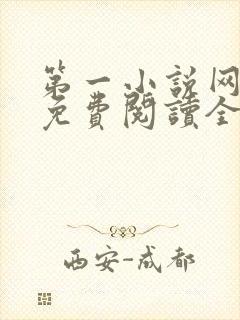 第一小说网
免费閱讀全
西安-成都